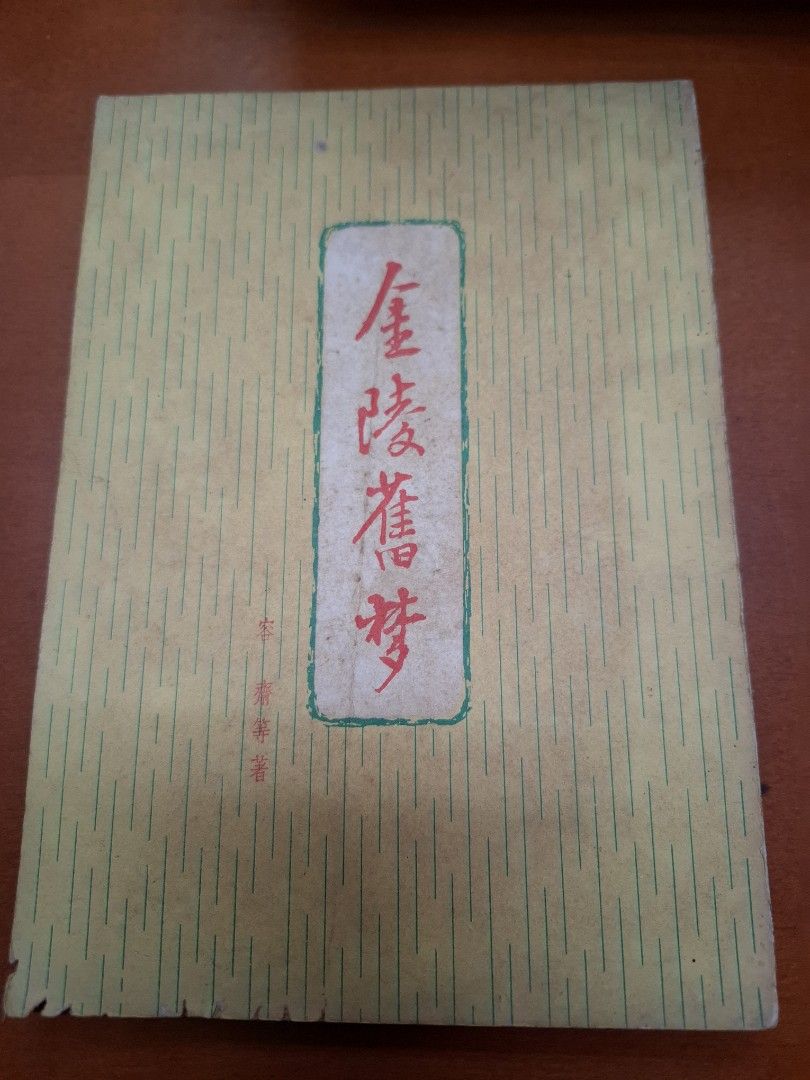 金陵舊梦
容齋等著